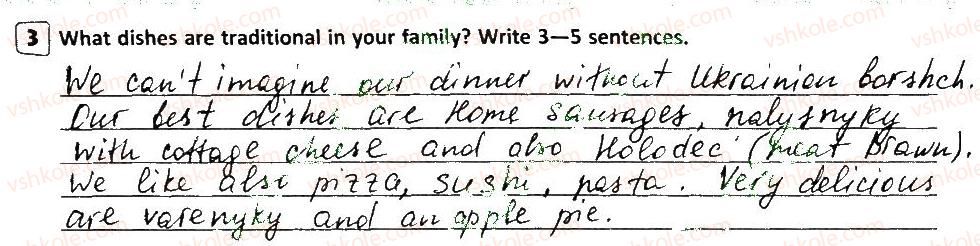 3 What dishes are traditional in your family? Write 3—5 sentences.
We can't imagine our dinner without Ukrainian borshch.
Our best dishes are Home sausages, nalysnyky
with cottage cheese and also Holodec' (meat Brawn).
We like also pizza, sushi, pasta. Very delicious
are varenyky and an apple pie.